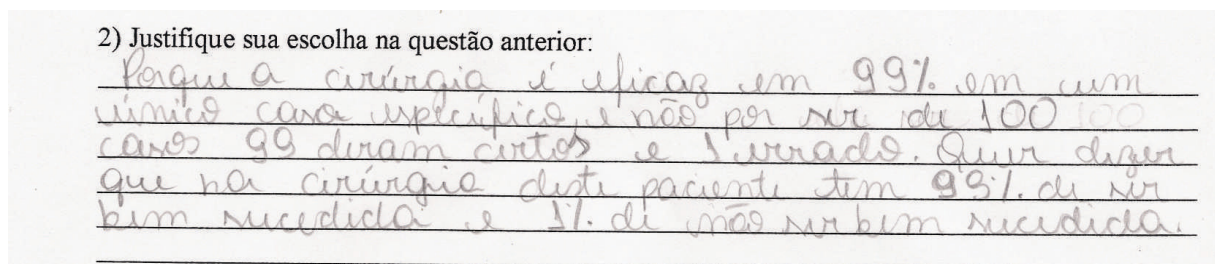 2) Justifique sua escolha na questão anterior:
Porque a cirúrgia é eficaz em 99% em um
único caso específico, e não por ser de 100
casos 99 deram certos e 1 errado. Quer dizer
que na cirúrgia deste paciente tem 99% de ser
bem sucedida e 1% de não ser bem sucedida.